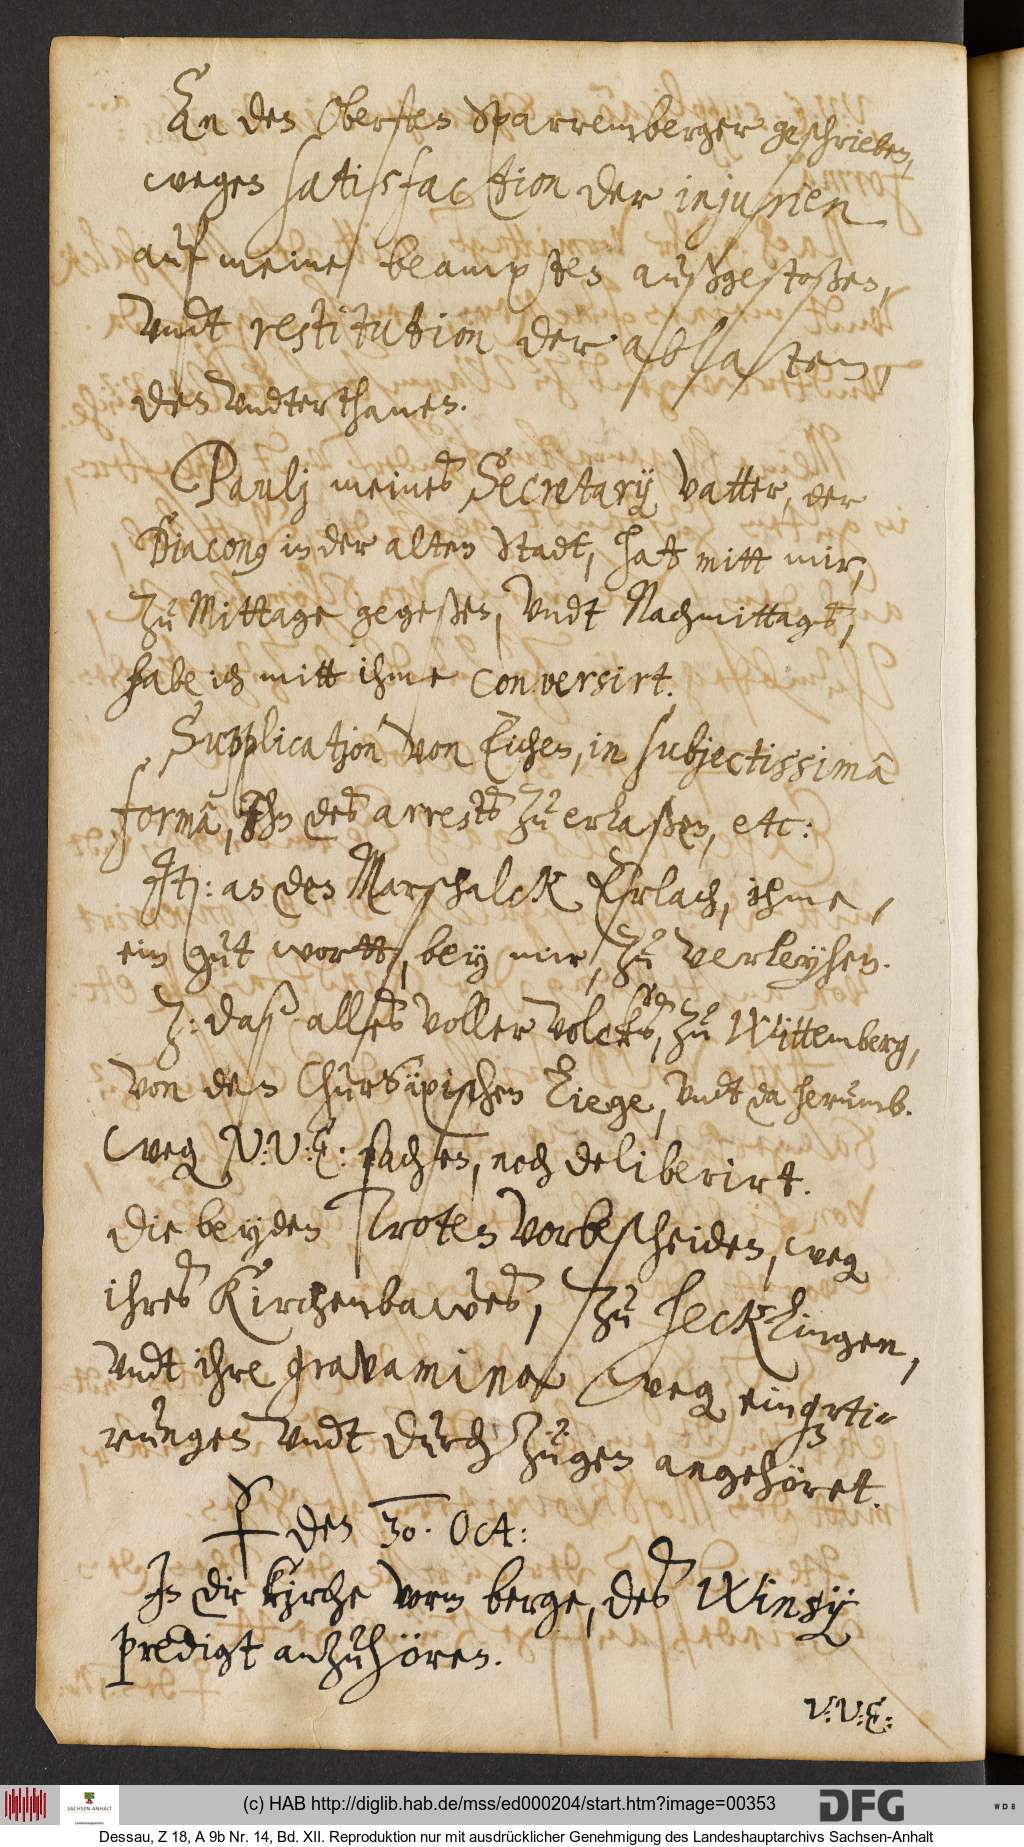 An den Obersten Sparremberger geschrieben,
wegen satisfaction der injurien
auf meine beampten außgestoßen,
vndt restitution der
den vndterthanen.
Paulj meines Secretarij Vatter, der
Diacong in der alten Stadt, hat mitt mir,
zu Mittage gegeßen, vndt Nachmittags,
habe ich mitt ihme conversirt.
Supplication von Eichen, in subjectissimâ
formâ, Ihn des arrests zu erlaßen, etc:
It: an den Marschalck Erlach, ihme,
ein gut wortt, bey mir, zu verleyhen.
Z: daß alles voller volcks, zu Wittemberg,
von den ChurSäxischen liege, vndt da herumb.
weg N: V: E: sachen, noch deliberirt.
Die beyden Troten vorbescheiden, weg
ihres Kirchenbawes, zu Hecklingen,
vndt ihre gravamina weg einqrti-
rungen vndt durchzügen angehöret.
den 30. Oct:
In die kirche vorm berge, des Winsij
predigt anzuhören.
V: V: E:
(c) HAB http://diglib.hab.de/mss/ed000204/start.htm?image=00353
SACHSEN-ANHALT
DFG
WDB
Dessau, Z 18, A 9b Nr. 14, Bd. XII. Reproduktion nur mit ausdrücklicher Genehmigung des Landeshauptarchivs Sachsen-Anhalt